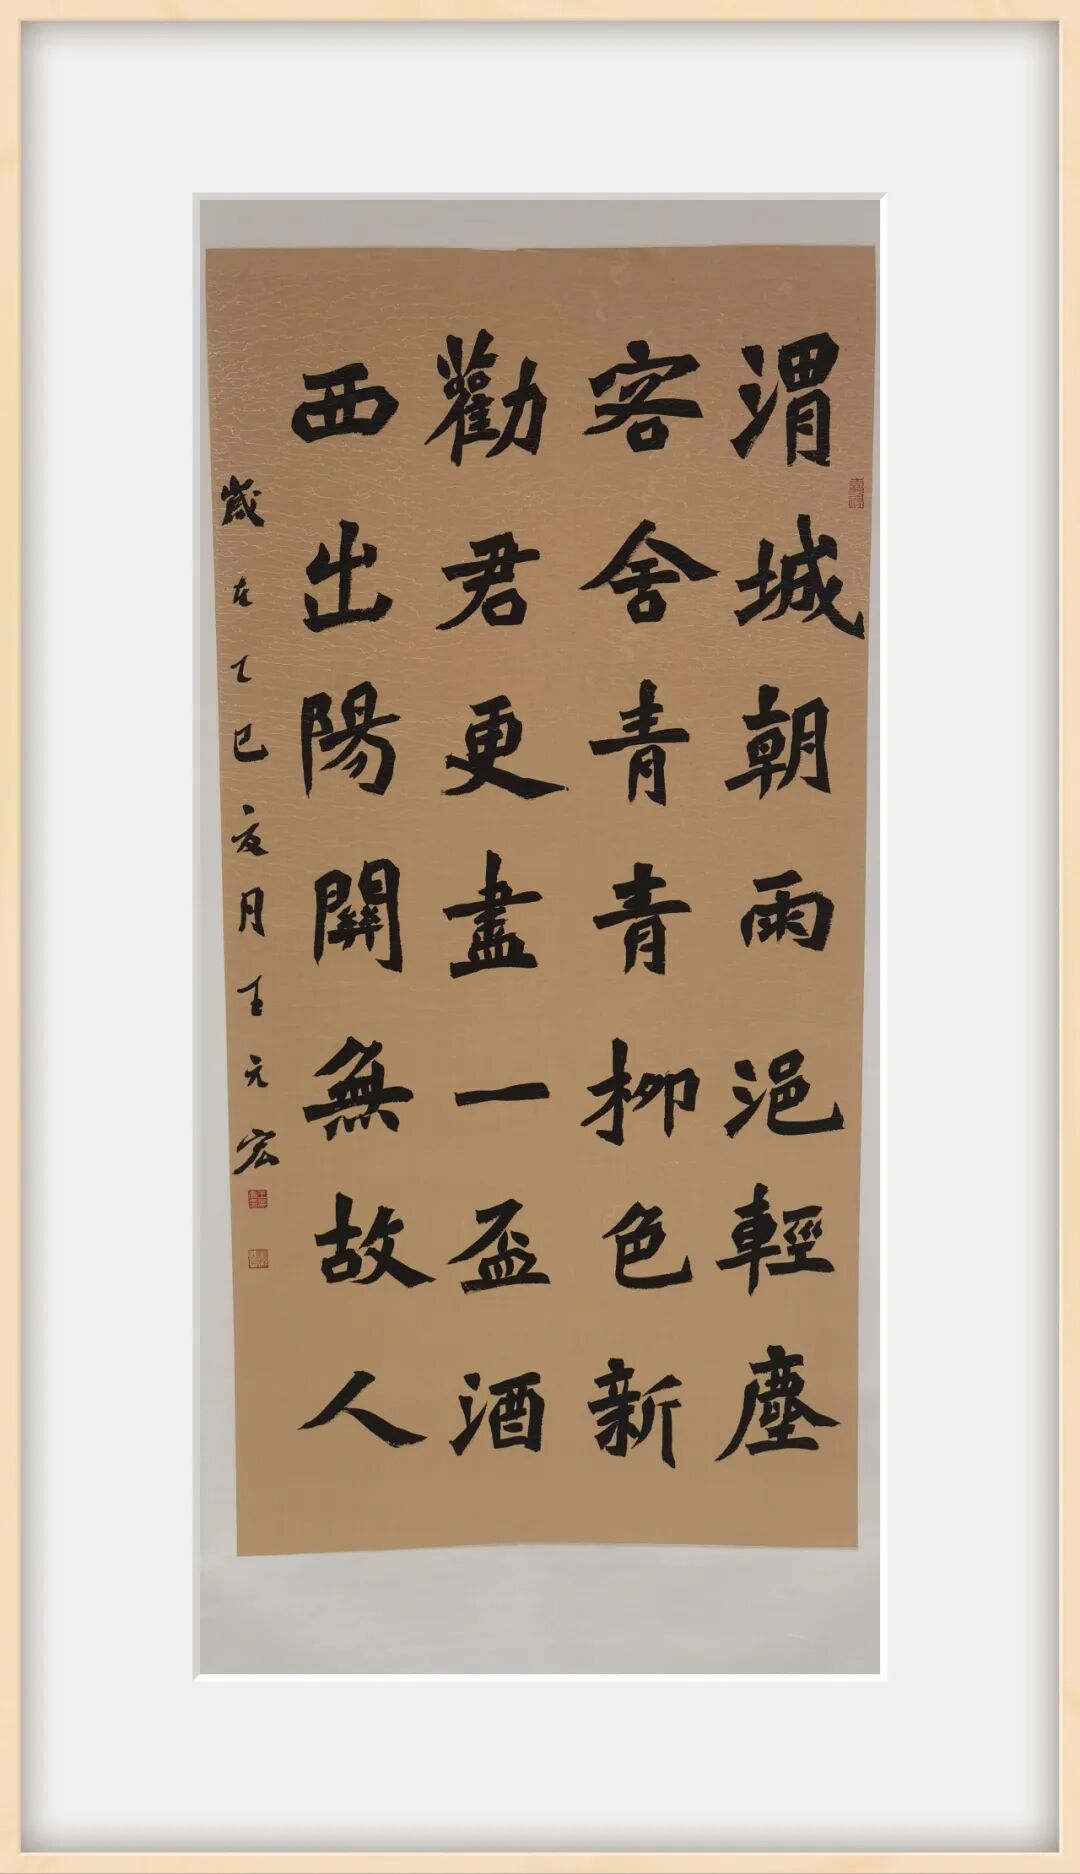 渭城朝雨浥輕塵
客舍青青柳色新
勸君更盡一盃酒
西出陽關無故人
歲在乙巳夏月王元宏